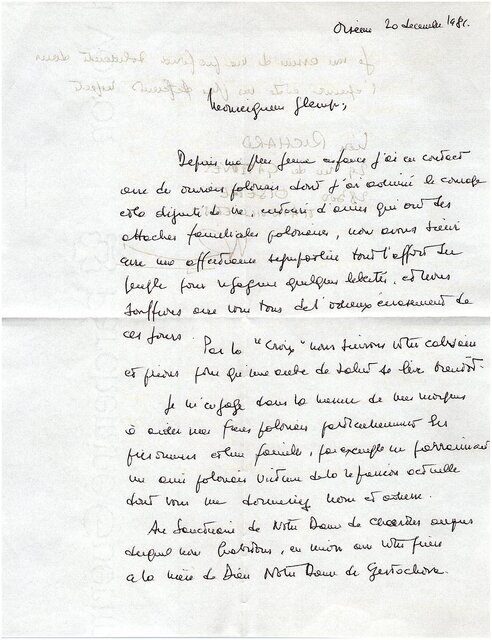 Oisème 20 décembre 1981.
Monseigneur Glemp,
Depuis ma plus jeune enfance j'ai eu contact
avec de ouvriers polonais dont j'ai admiré le courage
et la dignité de vie, entouré d'amis qui ont des
attaches familiales polonaises, nous avons suivi
avec une affectueuse sympathie tout l'effort du
peuple pour regagner quelques libertés, et nous
souffrons avec vous tous de l'odieux écrasement de
ces jours. Par la "Croix" nous suivons votre calvaire
et prions pour qu'une aube de salut se lève bientôt.
Je m'engage dans la mesure de mes moyens
à aider mes frères polonais particulièrement les
prisonniers et leur famille, par exemple en parrainant
un ami polonais victime de la répression actuelle
dont vous me donneriez nom et adresse.
Au Sanctuaire de Notre Dame de Chartres auprès
duquel nous habitons, en union avec votre prière
à la mère de Dieu Notre Dame de
RICHARD